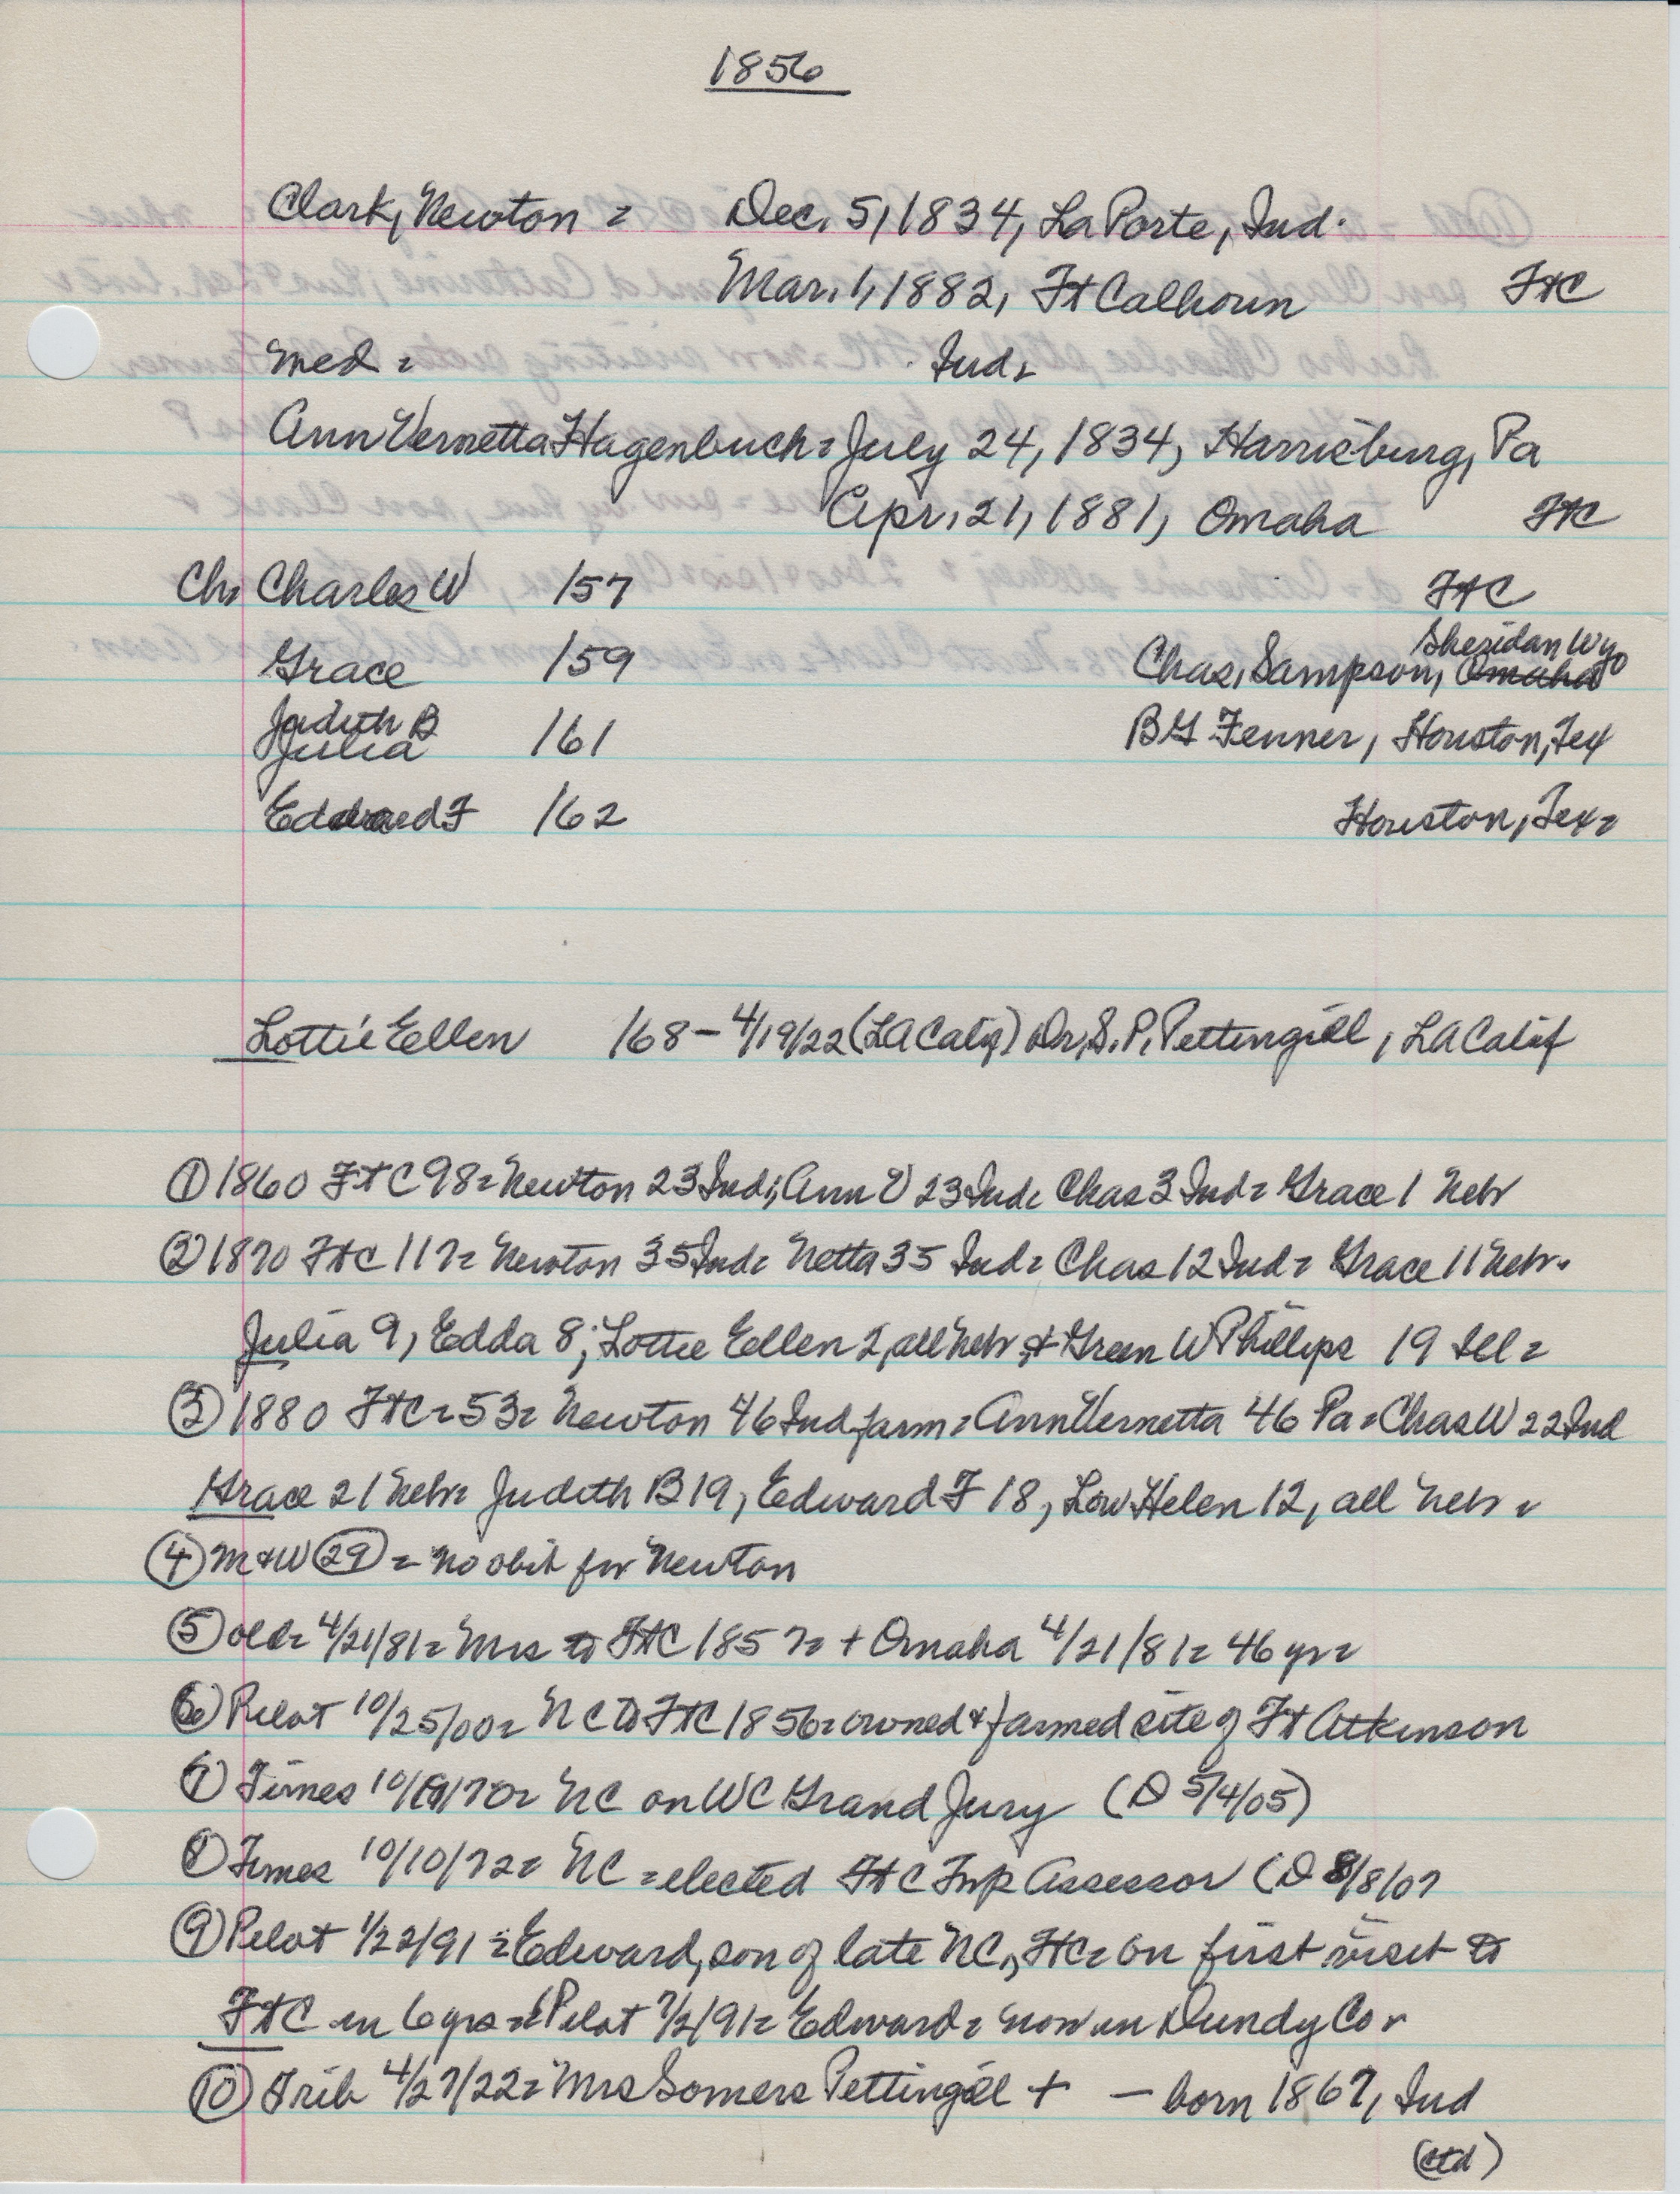 1856
Clark, Newton = Dec. 5, 1834, La Porte, Ind.
Mar. 1, 1882, Ft Calhoun FtC
med = Ind.
Ann Vernetta Hagenbuch = July 24, 1834, Harrisburg, Pa
Apr. 21, 1881, Omaha FtC
Ch, Charles W 157 FtC
Sheridan Wyo
Grace 159 Chas, Sampson, Omaha
Judith B
Julia 161 BG Fenner, Houston, Tex
Edward F 162 Houston, Tex =
Lottie Ellen 168 - 4/19/22 (LA Calif) Dr, S. P. Pettingill, LA Calif
① 1860 FtC 98 = Newton 23 Ind; Ann V 23 Ind = Chas 3 Ind = Grace 1 Nebr
② 1870 FtC 117 = Newton 35 Ind = Netta 35 Ind = Chas 12 Ind = Grace 11 Nebr.
Julia 9, Edda 8; Lottie Ellen 2, all Nebr, + Green W Phillips 19 Ill =
③ 1880 FtC = 53 = Newton 46 Ind farm = Ann Vernetta 46 Pa = Chas W 22 Ind
Grace 21 Nebr = Judith B 19, Edward F 18, Low Helen 12, all Nebr =
④ M+W ㉙ = No obit for Newton
⑤ old = 4/21/81 = Mrs to FtC 1857 = + Omaha 4/21/81 = 46 yr =
⑥ Pilot 10/25/00 = NC to FtC 1856 = owned + farmed site of Ft Atkinson
⑦ Times 10/ /70 = NC on WC Grand Jury (D 5/4/05)
⑧ Times 10/10/72 = NC = elected FtC Twp Assessor (D 8/8/07
⑨ Pilot 1/22/91 = Edward, son of late NC, FtC = on first visit to
FtC in 6 yrs = (Pilot 7/2/91 = Edward = now in Dundy Co =
⑩ Trib 4/27/22 = Mrs Somers Pettingill + — born 1867, Ind
(ctd)